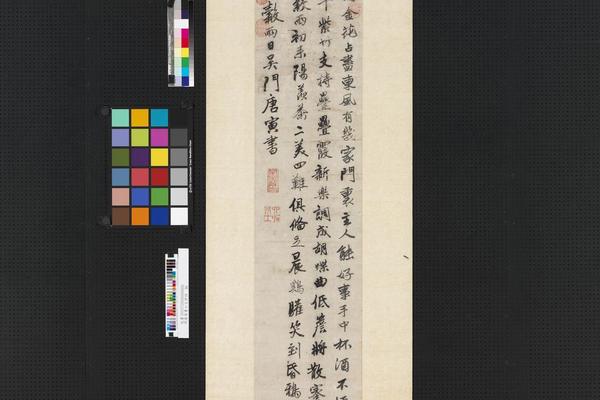 金花占盡東風有幾家門裏主人能好事手中杯酒不
紫竹支持疊疊霞新樂調成胡蝶曲低簷將散蜜
穀雨初來陽羨茶二美四難俱備足晨鷄懽笑到昏鴉
穀雨日吳門唐寅書